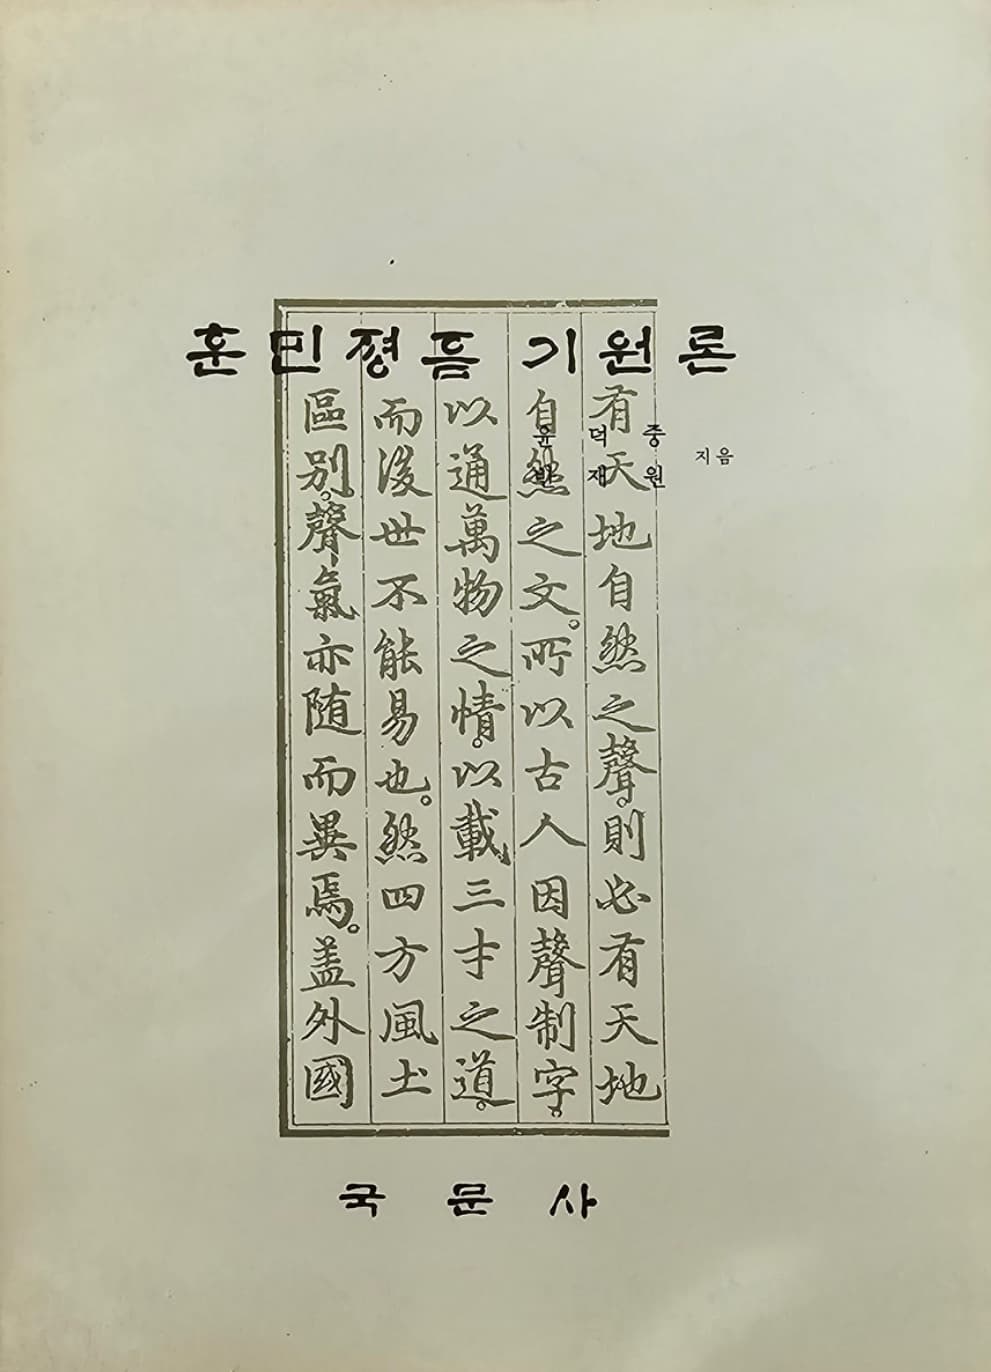 훈민정음 기원론
윤덕중
반재원
지음
有天地自然之聲。則必有天地
自然之文。所以古人因聲制字。
以通萬物之情。以載三才之道。
而後世不能易也。然四方風土
區别。聲氣亦随而異焉。盖外國
국문사